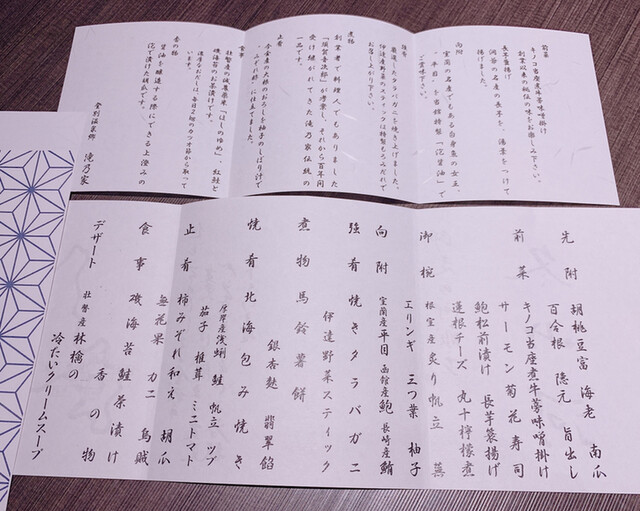 前菜
キノコ当座煮牛蒡味噌掛け
創業以来の秘伝の味をお楽しみ下さい。
長芋簔揚げ
洞爺の名産の長芋を、湯葉をつけて
揚げました。
向附
室蘭の名産でもある白身魚の女王、
「平目」を当館特製「泡醤油」で
ご賞味下さい。
強肴
厳選したタラバガニを焼き上げました。
伊達産野菜のスティックは特製もろみだれで
お召し上がり下さい。
煮物
創業者で料理人でもありました
「須賀喜次郎」が考案し、それから百年間
受け継がれてきた滝乃家伝統の
一品です。
止肴
みぞれ酢に仕立てました。
食事
壮瞥産の特集栽米「ほしのゆめ」、紅鮭と
磯海苔のお茶漬けです。
います。
香の物
醤油を醸造する際にできる上澄みの
泡で漬けた胡瓜です。
登別温泉郷　滝乃家
先附　胡桃豆富　海老　南瓜
百合根　隠元　旨出し
前菜　キノコ当座煮牛蒡味噌掛け
サーモン菊花寿司
鮑松前漬け　長芋簔揚げ
蓮根チーズ　丸十檸檬煮
御椀　根室産炙り帆立　蕪
エリンギ　三つ葉　柚子
向附　室蘭産平目　函館産鮑　長崎産鮪
強肴　焼きタラバガニ
伊達野菜スティック
煮物　馬鈴薯餅
銀杏麩　翡翠餡
焼肴　北海包み焼き
厚岸産浅蜊　鮭　帆立　ツブ
茄子　椎茸　ミニトマト
止肴　柿みぞれ和え　胡瓜
無花果　カニ　烏賊
食事　磯海苔鮭茶漬け
香の物
デザート　壮瞥産林檎の
冷たいクリームスープ